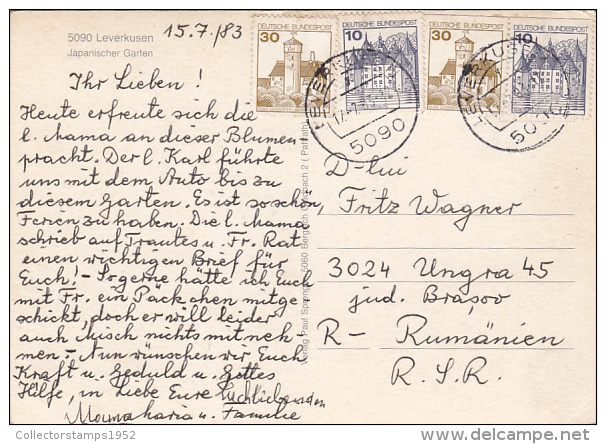 5090 Leverkusen
Japanischer Garten
15.7./83
DEUTSCHE BUNDESPOST
30
DEUTSCHE BUNDESPOST
10
DEUTSCHE BUNDESPOST
30
DEUTSCHE BUNDESPOST
10
5090
Ihr Lieben!
Heute erfreute sich die
l. Mama an dieser Blumen
pracht. Der l. Karl führte
uns mit dem Auto bis zu
diesem Garten. Es ist so schön,
Ferien zu haben. Die l. Mama
schrieb auf Trautes u. Fr. Rat
einen wichtigen Brief für
Euch! - So gerne hätte ich Euch
mit Fr. ein Päckchen mitge
schickt, doch er will leider
auch Misch nichts mitneh-
men. - Nun wünschen wir Euch
Kraft u. Geduld u. Gottes
Hilfe, in Liebe Eure
u. Familie
D-lui
Fritz Wagner
3024 Ungra 45
jud. Brașov
R- Rumänien
R.S.R.
Collectorstamps1952
delcampe.net